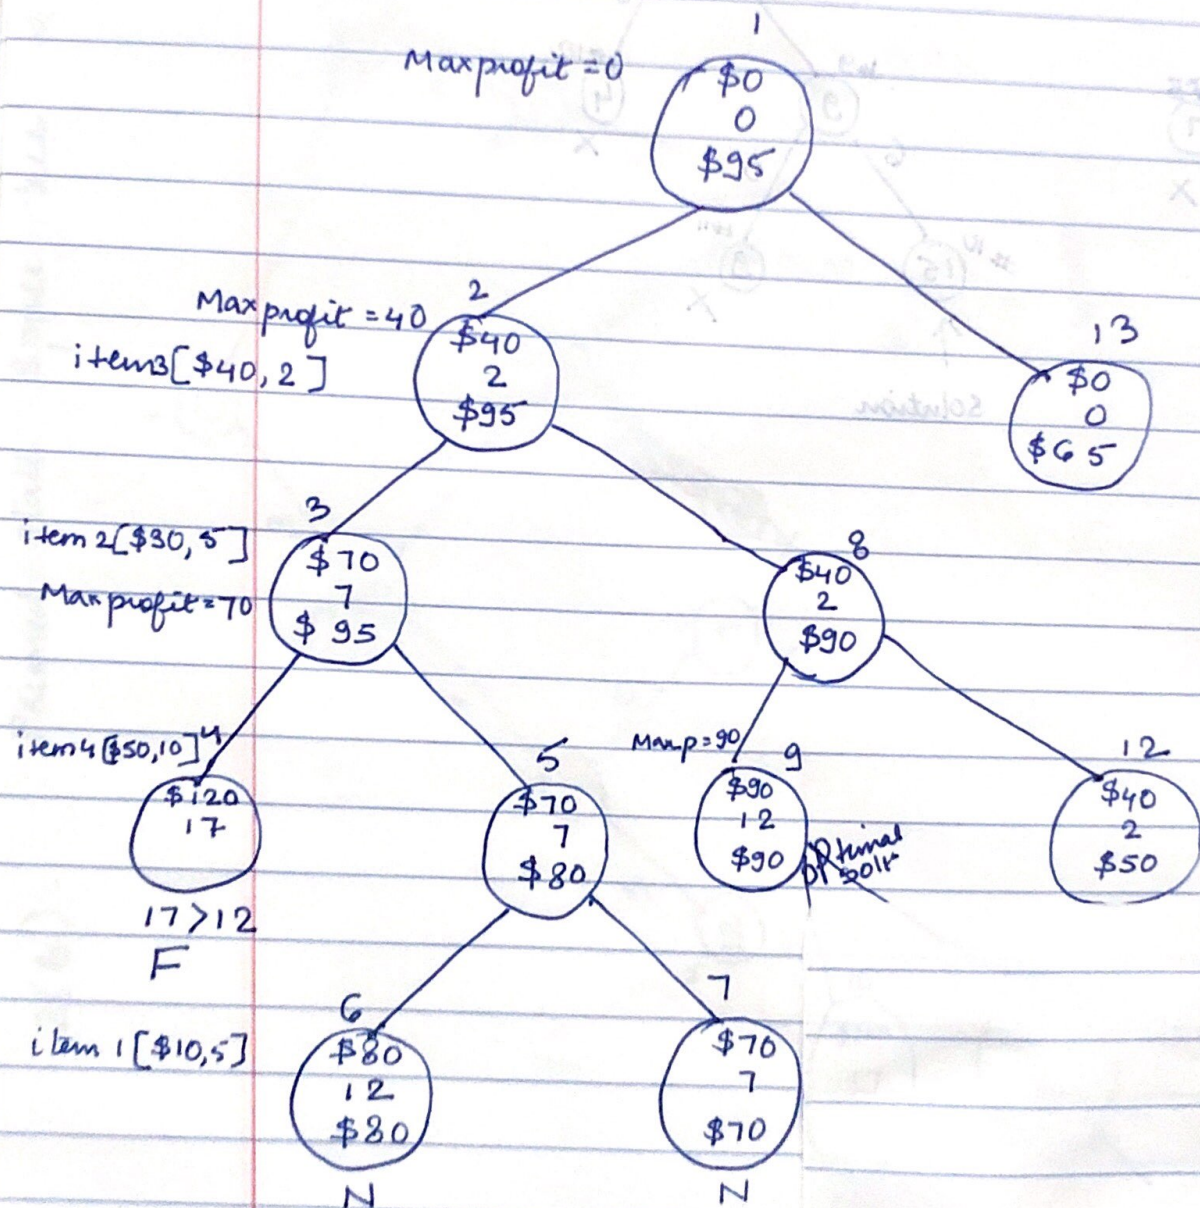 1
Maxprofit = 0
$0
0
$95
2
Maxprofit = 40
item3[$40,2]
$40
2
$95
13
$0
0
$65
3
item 2[$30,5]
Maxprofit=70
$70
7
$95
8
$40
2
$90
item4[$50,10]
4
$120
17
17>12
F
5
$70
7
$80
Maxp=90
9
$90
12
$90
optimal
soln
12
$40
2
$50
6
item 1[$10,5]
$80
12
$80
N
7
$70
7
$70
N
solution